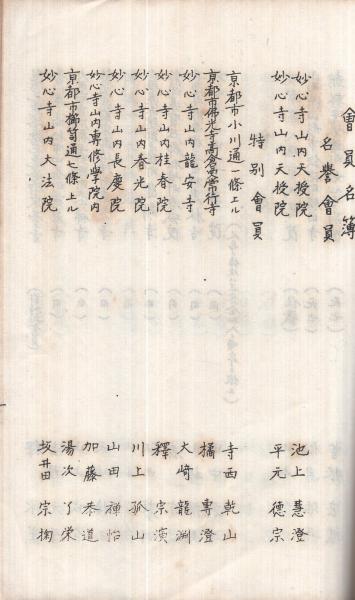 會員名簿
名譽會員
妙心寺山内天授院 池上慧澄
妙心寺山内天授院 平元德宗
特別會員
京都市小川通一條上ル 寺西乾山
京都市佛光寺高倉西常行寺 橘專澄
妙心寺山内龍安寺 大﨑龍渕
妙心寺山内桂春院 釋宗演
妙心寺山内春光院 川上孤山
妙心寺山内長慶院 山田禅怡
妙心寺山内專修學院内 加藤泰道
京都市櫛笥通七條上ル 湯次了栄
妙心寺山内大法院 坂井田宗掬